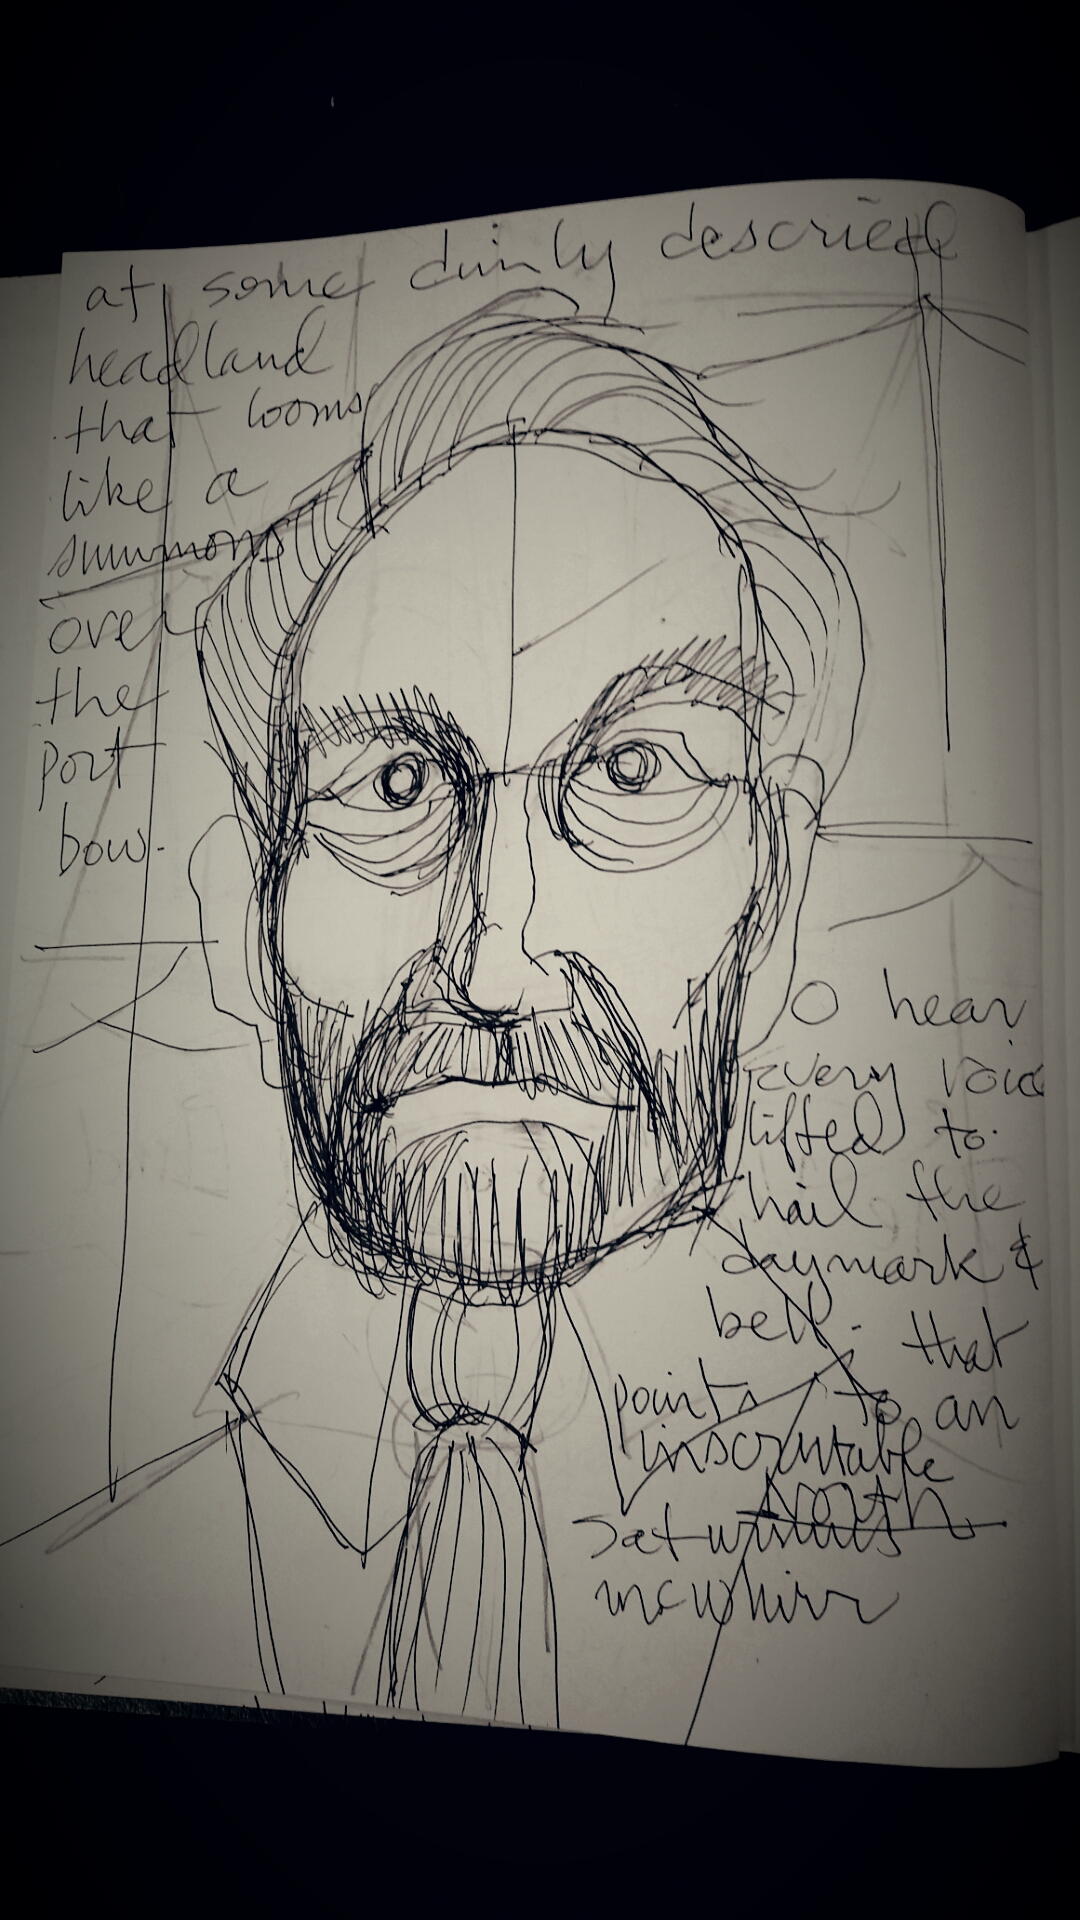 at some dimly descried
headland
that looms
like a
summons
over
the
port
bow.
O hear
every voice
lifted to
hail the
daymark &
bell - that
points to an
inscrutable
north
Saturninus
mcwhirr